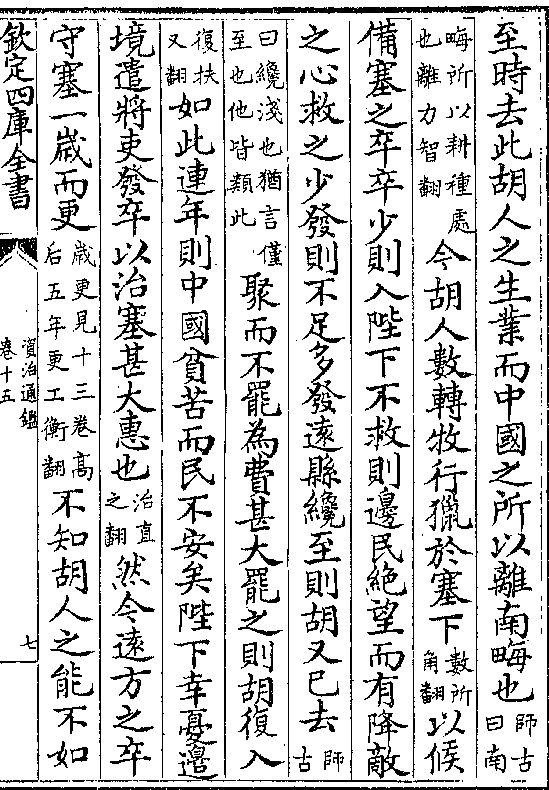 至時去此胡人之生業而中國之所以離南畮也師古曰南
畮所以耕種處也離力智翻今胡人數轉牧行獵於塞下數所角翻以候
備塞之卒卒少則入陛下不救則邊民絶望而有降敵
之心救之少發則不足多發遠縣纔至則胡又已去師古
曰纔淺也猶言僅至也他皆類此聚而不罷為費甚大罷之則胡復入
復扶又翻如此連年則中國貧苦而民不安矣陛下幸憂邊
境遣將吏發卒以治塞甚大惠也治直之翻然令遠方之卒
守塞一歲而更歲更見十三卷高后五年更工衡翻不知胡人之能不如
欽定四庫全書
資治通鑑
卷十五
七